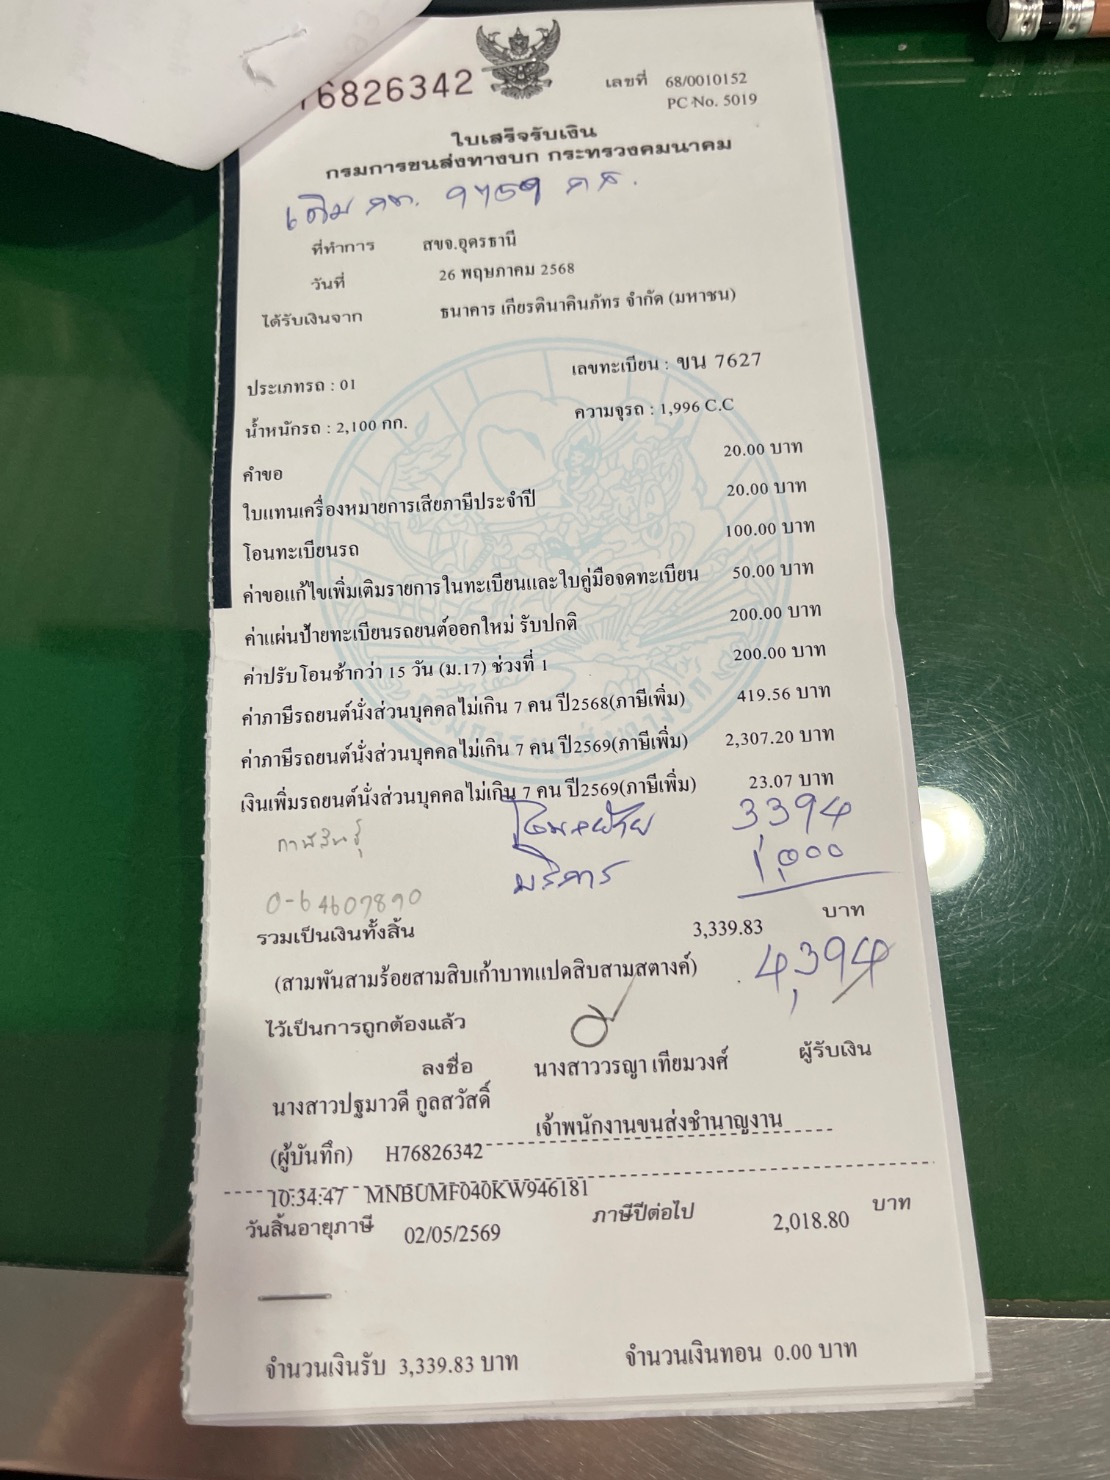 76826342
เลขที่ 68/0010152
PC No. 5019
ใบเสร็จรับเงิน
กรมการขนส่งทางบก กระทรวงคมนาคม
เดิม
ที่ทำการ สขจ.อุดรธานี
วันที่ 26 พฤษภาคม 2568
ได้รับเงินจาก ธนาคาร เกียรตินาคินภัทร จำกัด (มหาชน)
ประเภทรถ : 01 เลขทะเบียน : ขน 7627
น้ำหนักรถ : 2,100 กก. ความจุรถ : 1,996 C.C
คำขอ 20.00 บาท
ใบแทนเครื่องหมายการเสียภาษีประจำปี 20.00 บาท
โอนทะเบียนรถ 100.00 บาท
ค่าขอแก้ไขเพิ่มเติมรายการในทะเบียนและใบคู่มือจดทะเบียน 50.00 บาท
ค่าแผ่นป้ายทะเบียนรถยนต์ออกใหม่ รับปกติ 200.00 บาท
ค่าปรับโอนช้ากว่า 15 วัน (ม.17) ช่วงที่ 1 200.00 บาท
ค่าภาษีรถยนต์นั่งส่วนบุคคลไม่เกิน 7 คน ปี2568(ภาษีเพิ่ม) 419.56 บาท
ค่าภาษีรถยนต์นั่งส่วนบุคคลไม่เกิน 7 คน ปี2569(ภาษีเพิ่ม) 2,307.20 บาท
เงินเพิ่มรถยนต์นั่งส่วนบุคคลไม่เกิน 7 คน ปี2569(ภาษีเพิ่ม) 23.07 บาท
กาฬสินธุ์ 3,394
บริการ 1,000
0-64607890
รวมเป็นเงินทั้งสิ้น 3,339.83 บาท
(สามพันสามร้อยสามสิบเก้าบาทแปดสิบสามสตางค์) 4,394
ไว้เป็นการถูกต้องแล้ว
ลงชื่อ นางสาววรญา เทียมวงศ์ ผู้รับเงิน
นางสาวปฐมาวดี กูลสวัสดิ์ เจ้าพนักงานขนส่งชำนาญงาน
(ผู้บันทึก) H76826342
10:34:47 MNBUMF040KW946181
วันสิ้นอายุภาษี 02/05/2569 ภาษีปีต่อไป 2,018.80 บาท
จำนวนเงินรับ 3,339.83 บาท จำนวนเงินทอน 0.00 บาท